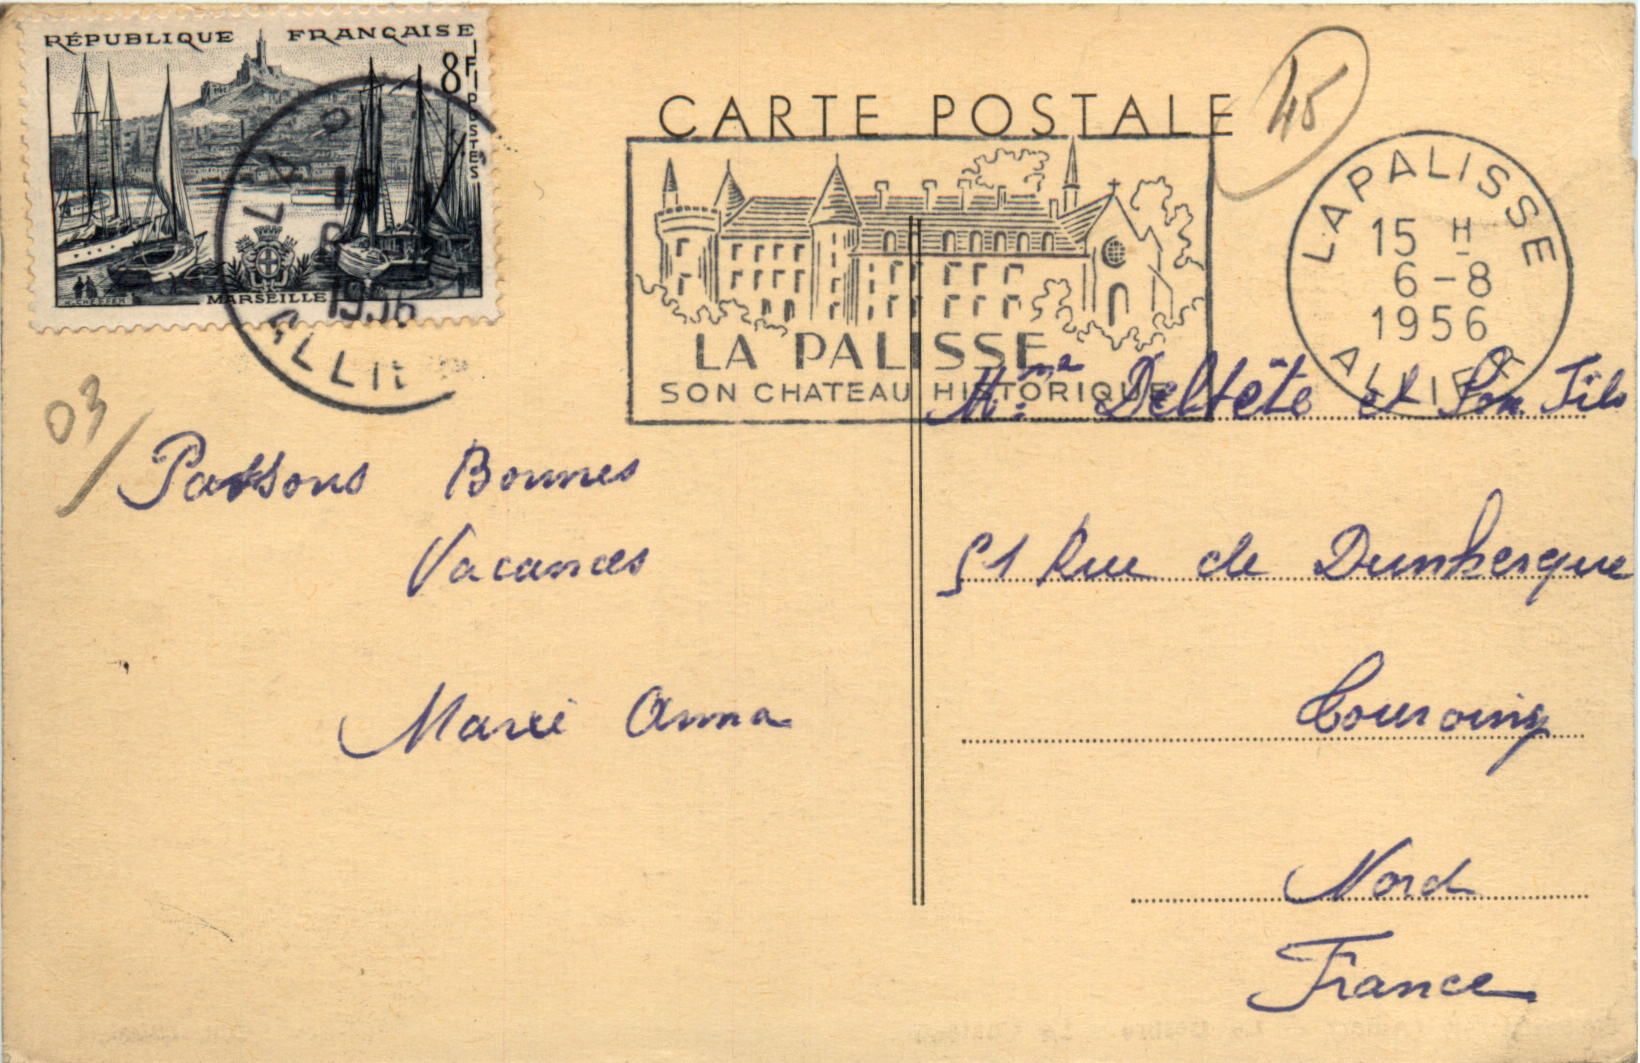 RÉPUBLIQUE FRANÇAISE
8F
POSTES
MARSEILLE
1956
CARTE POSTALE
45
LA PALISSE
SON CHATEAU HISTORIQUE
LAPALISSE
15 H
6-8
1956
ALLIER
03/
Passons Bonnes
Vacances
Marie Anna
Mme Deltête et Son Fils
51 Rue de Dunkerque
Tourcoing
Nord
France